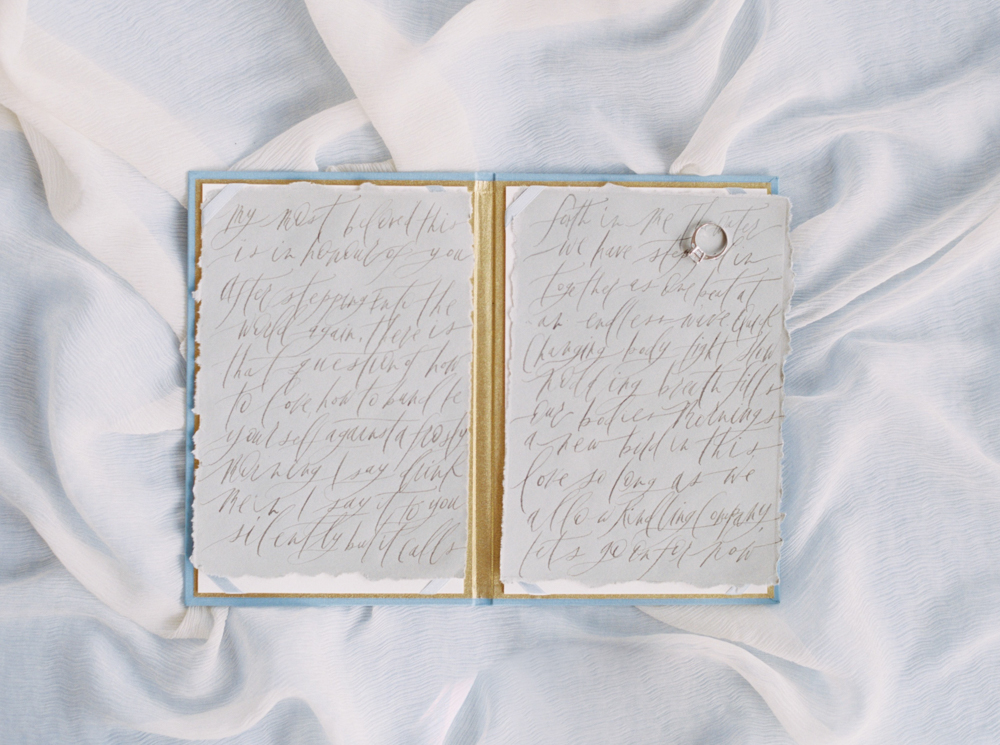 My most beloved this
is in honour of you
After stepping into the
world again, there is
that question of how
to love how to bundle
yourself against a frosty
morning I say drink
me in I say it to you
silently but it calls
forth in me the
we have in
together as one beat at
an endless wave
Changing body light slow
breath fills
our bodies
a new build in this
love so long as we
a kindling company
let's go on for now